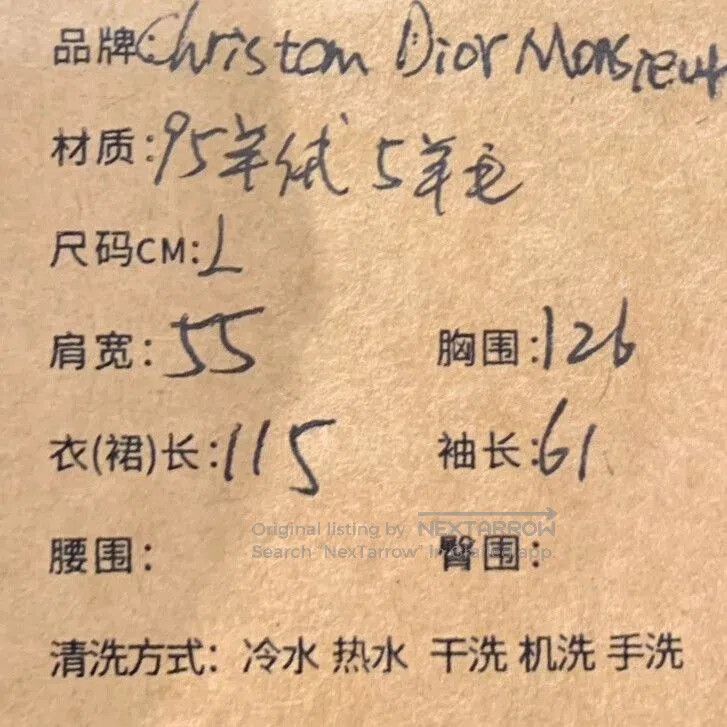 品牌:Christom Dior Monsieur
材质:95羊绒 5羊毛
尺码CM:L
肩宽:55 胸围:126
衣(裙)长:115 袖长:61
Original listing by NEXTARROW
Search "NexTarrow" in app.
腰围: 臀围:
清洗方式:冷水 热水 干洗 机洗 手洗